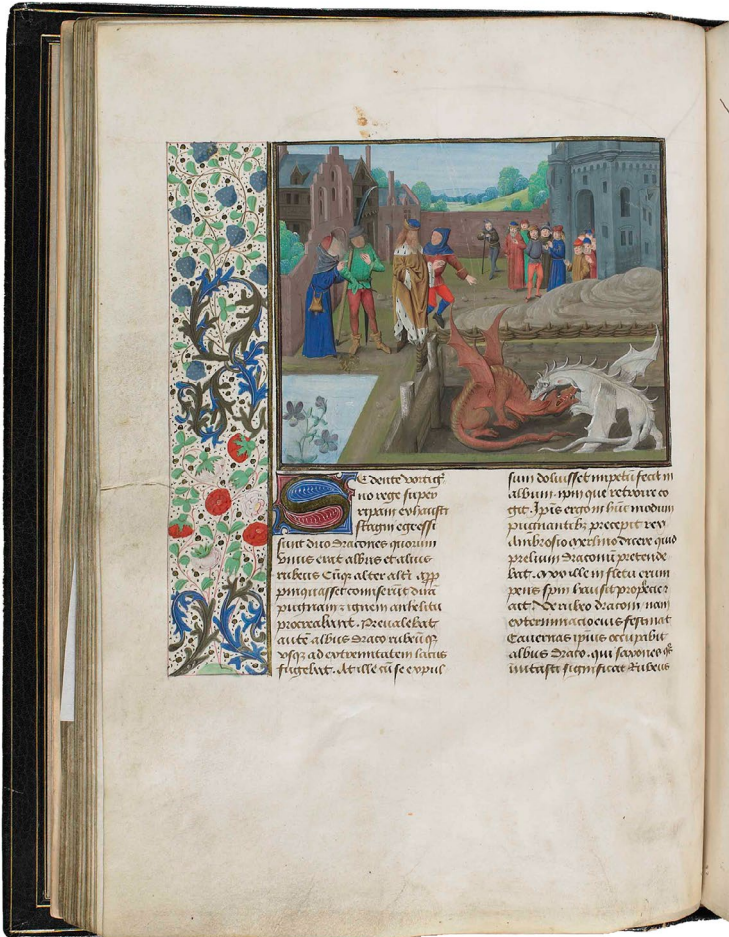 Sedente vortig
no rege super
ripam exhausti
stagni egressi
sunt duo dracones quorum
vnus erat albus et alius
rubeus Cumqz alter alteri app
pinquasset comiserunt dira
pugnam z ignem anhelitu
procreabant. Preualebat
autem albus draco rubeumqz
vsqz ad extremitatem lacus
fugabat. At ille cum se expul
sum doluisset impetum fecit in
album. ipm que retroire co
git. Ipis ergo in hunc modum
pugnantibz precepit rex
Ambrosio merlino dicere quid
prelium draconum pretende
bat. Mox ille in fletum erum
pens spm hausit prophecie et
ait Ve rubeo draconi nam
exterminacio eius festinat
Cauernas ipius occupabit
albus draco. qui saxones qs
inuitasti significat Rubeus